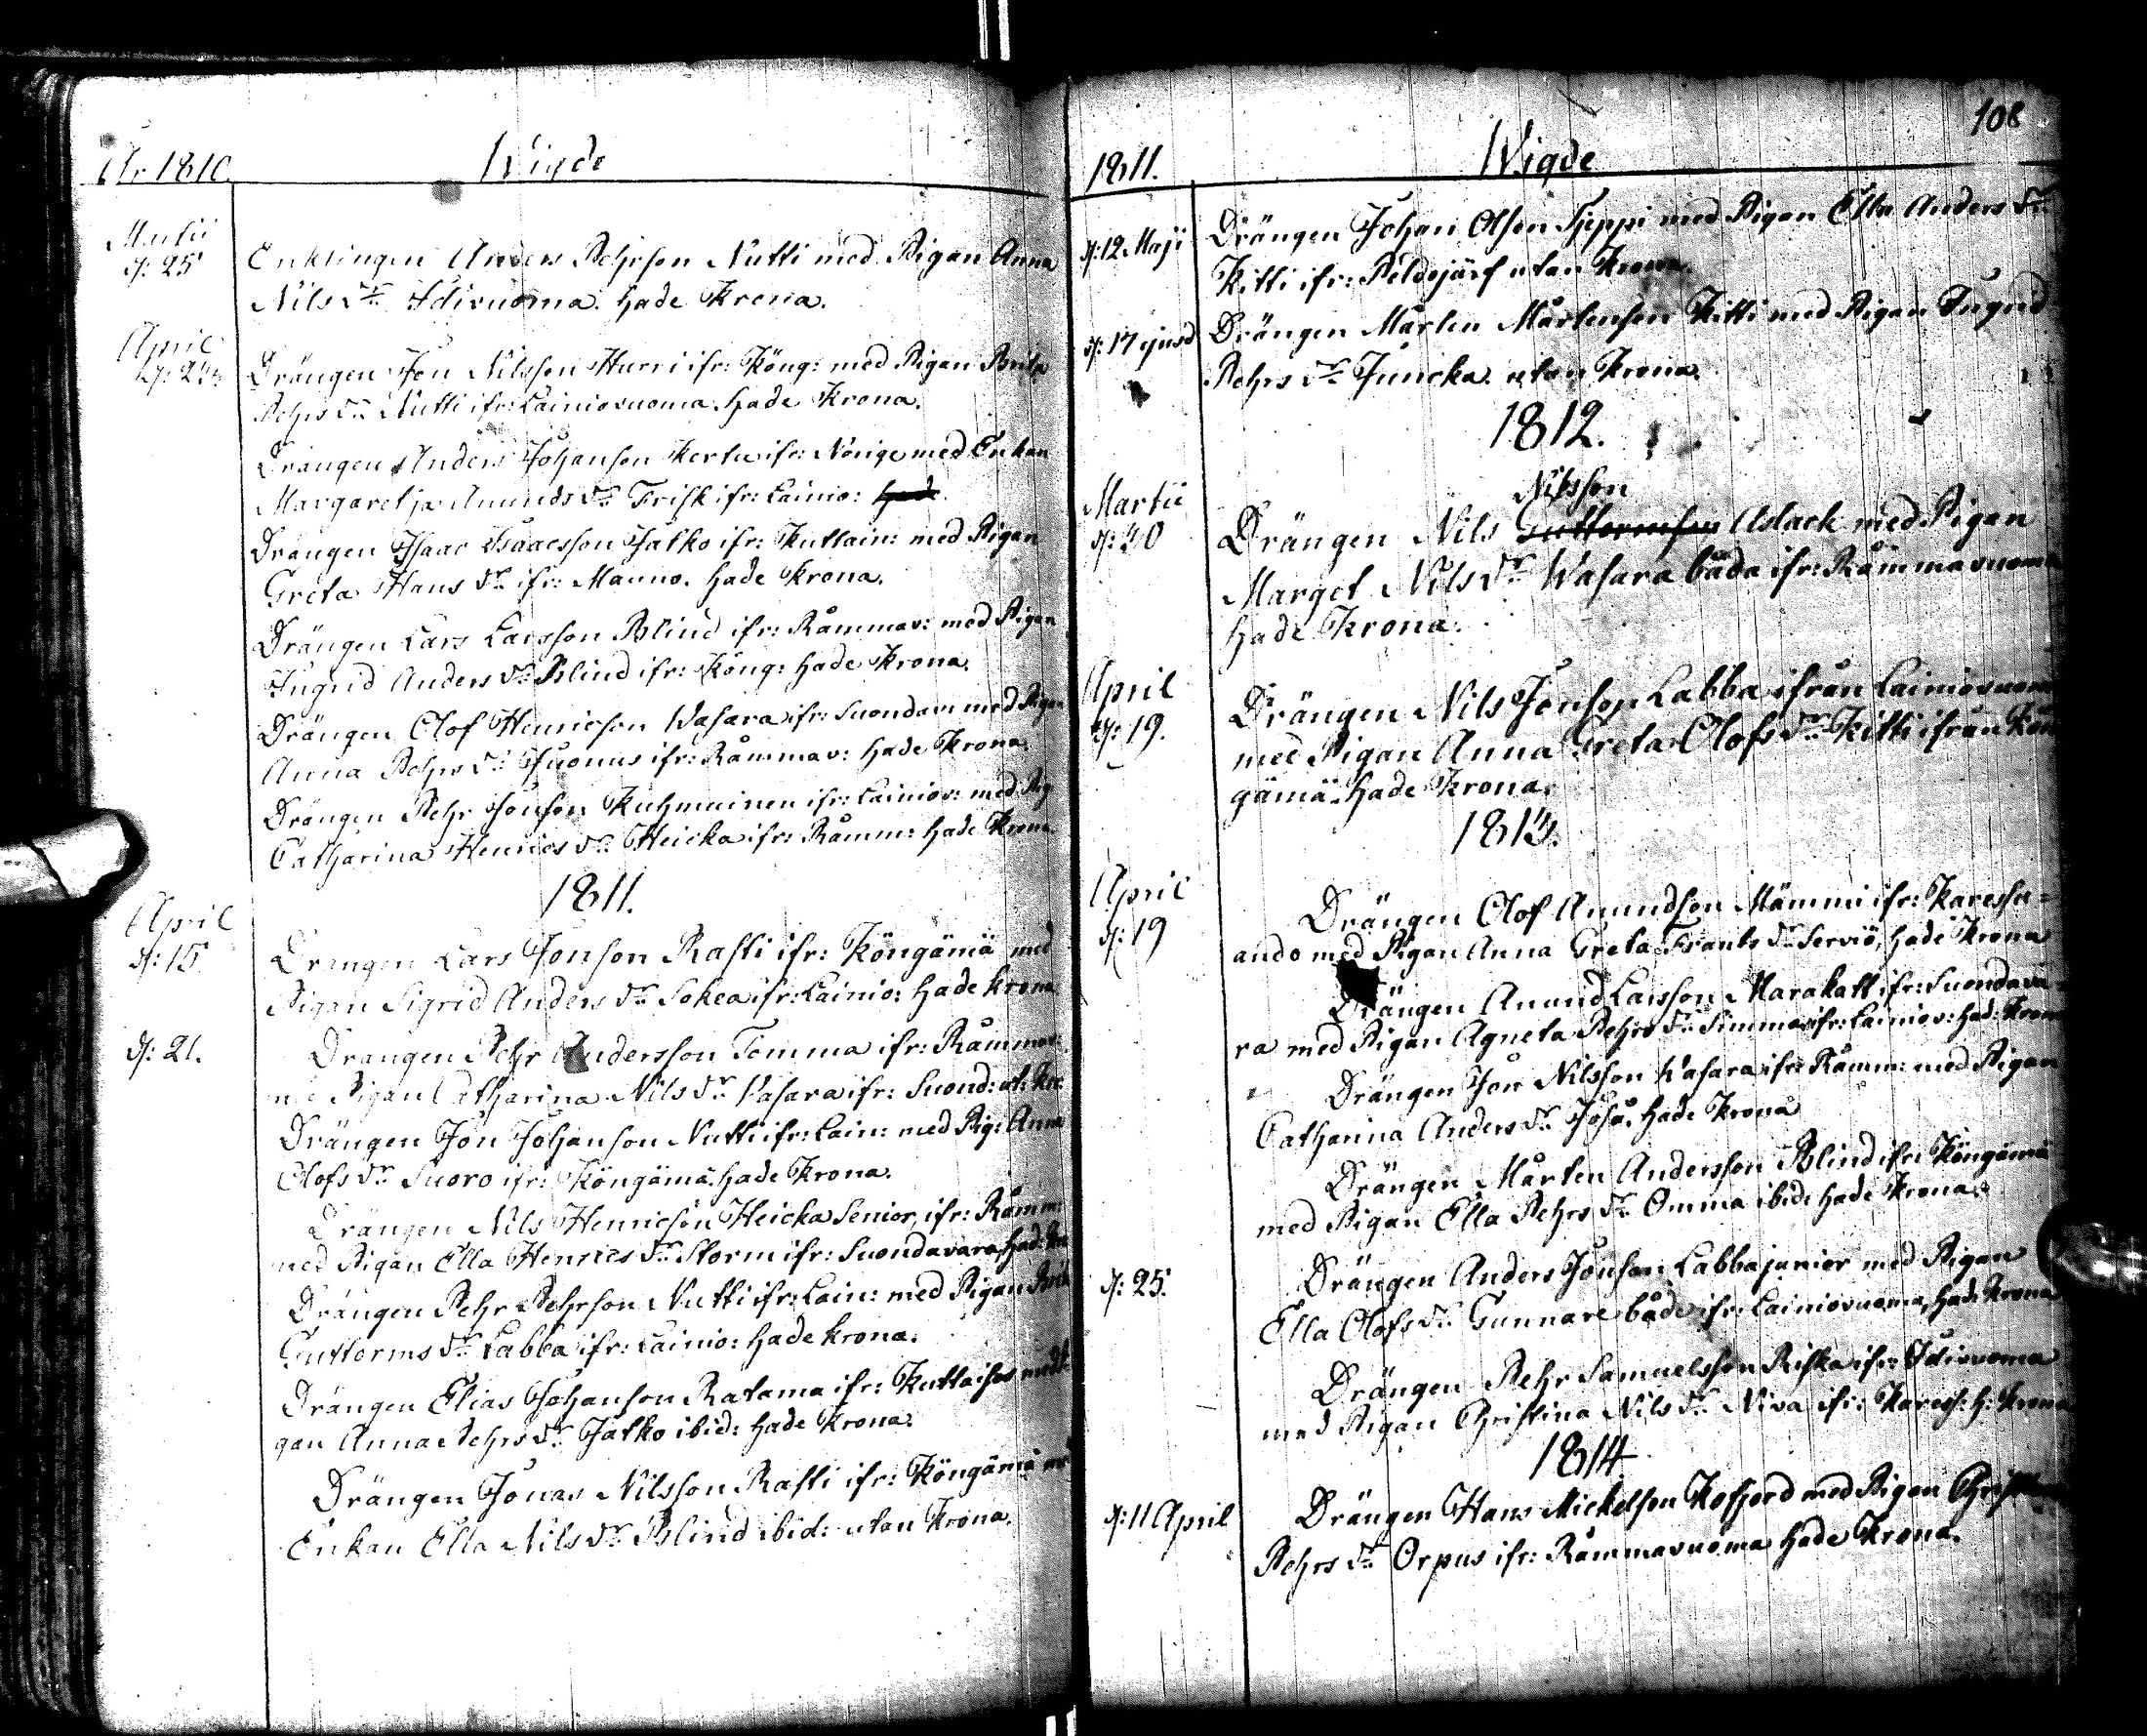 År 1810. Wigde
Martii
d: 25 Enklingen Anders Pehrson Nutti med Pigan Anna
Nils dr Idivuoma. hade Krona.
April
Drängen Jon Nilsson Hurri ifr: Köng: med Pigan Brita
Pehrs dr Nutti ifr: Lainiovuoma. hade Krona.
Drängen Anders Johanson Kertu ifr: Norige med Enkan
Margaretha Amunds dr Frisk ifr: Lainio: hade
Drängen Isaac Isaacsson Jalko ifr: Kuttain: med Pigan
Greta Hans dr ifr: Manno. hade Krona.
Drängen Lars Larsson Blind ifr: Råmmav: med Pigan
Ingrid Anders dr Blind ifr: Köng: hade Krona.
Drängen Olof Henricson Wasara ifr: Suondav: med Pigan
Anna Pehrs dr Juonus ifr: Råmmav: hade Krona.
Drängen Pehr Jonson Kuhmuinen ifr: Lainiov: med Pig
Catharina Henrics dr Heicka ifr: Råmm: hade Krona.
1811.
April
d: 15. Drängen Lars Jonson Rasti ifr: Köngämä med
Pigan Sigrid Anders dr Sokea ifr: Lainio: hade krona
d: 21. Drängen Pehr Andersson Tomma ifr: Råmmav:
Pigan Catharina Nils dr Vasara ifr: Suond: ut: Kr:
Drängen Jon Johanson Nutti ifr: Lain: med Pig: Anna
Olofs dr Suoro ifr: Köngämä. hade Krona.
Drängen Nils Henricson Heicka Senior, ifr: Råmm:
med Pigan Ella Henrics dr Storm ifr: Suondavara, had:
Drängen Pehr Pehrson Nutti ifr: Lain: med Pigan Brit
Guttorms dr Labba ifr: Lainio: hade krona.
Drängen Elias Johanson Ratama ifr: Kuttaisa
gan Anna Pehrs dr Jatko ibid: hade Krona.
Drängen Jonas Nilsson Rasti ifr: Köngämä
Enkan Ella Nils dr Blind ibid: utan Krona.
108
1811. Wigde
d: 12 Maji Drängen Johan Olsson Sieppi med Pigan Ella Anders dr
Kitti ifr: Peldojärf utan Krona.
d: 17 ejusd Drängen Mårten Mårtenson Kitti med Pigan Ingrid
Pehrs dr Juncka. utan Krona.
1812.
Nilsson
Martii
d: 30 Drängen Nils Guttormson Aslack med Pigan
Marget Nils dr Wasara båda ifr: Råmmavuoma
hade Krona.
April
d: 19. Drängen Nils Jonson Labba ifrån Lainiovuom
med Pigan Anna Greta Olofs dr Kitti ifrån Kön
gämä. hade Krona.
1813.
April
d: 19 Drängen Olof Amundson Mämmi ifr: Karessu=
ando med Pigan Anna Greta Frants dr Serviö, hade Krona
Drängen Amund Larsson Marakatt ifr: Suondava=
ra med Pigan Agneta Pehrs dr Simma ifr: Lainiov: had: Krona
Drängen Jon Nilsson Wasara ifr: Råmm: med Pigan
Catharina Anders dr Joså. hade Krona
Drängen Mårten Andersson Blind ifr: Köngämä
med Pigan Ella Pehrs dr Omma ibid: hade Krona.
d: 25. Drängen Anders Jonson Labba junior med Pigan
Ella Olofs dr Gunnare både ifr: Lainiovuoma, hade Krona
Drängen Pehr Samuelsson Riska ifr: Idivuoma
med Pigan Christina Nils dr Niva ifr: Karess: h: Krona
1814
d: 11 April Drängen Hans Mickelson Kosjord med Pigan
Pehrs dr Orpus ifr: Råmmavuoma hade Krona.